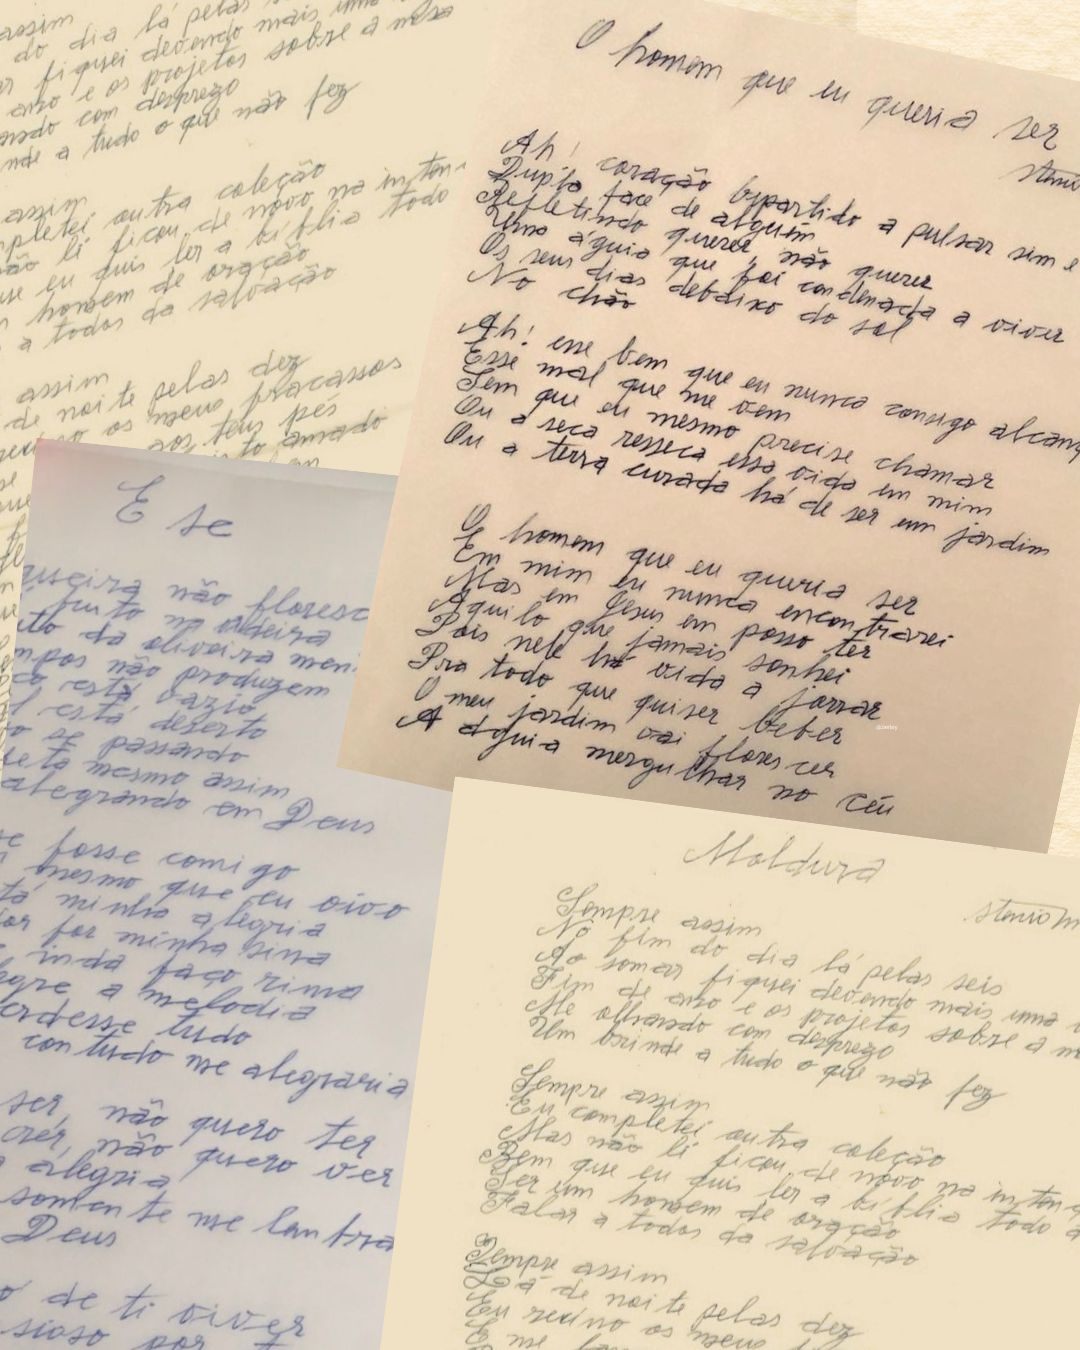 assim
do dia lá pelas
fiquei devendo mais uma
ano e os projetos sobre a mesa
com desprezo
a tudo o que não fez
assim
outra coleção
não li ficou de novo na inten
que eu quis ler a bíblia todo
homem de oração
a todos da salvação
assim
de noite pelas dez
os meus fracassos
aos teus pés
amado
O homem que eu queria ser
Ah! coração bipartido a pulsar sim e
Dupla face de alguém
Refletindo querer e não querer
Uma águia que foi condenada a viver
Os seus dias debaixo do sol
No chão
Ah! esse bem que eu nunca consigo alcanç
Esse mal que me vem
Sem que eu mesmo precise chamar
Ou a seca resseca essa vida em mim
Ou a terra curada há de ser um jardim
O homem que eu queria ser
Em mim eu nunca encontrarei
Mas em Jesus eu posso ter
Aquilo que jamais sonhei
Pois nele há vida a jorrar
Pra todo que quiser beber
O meu jardim vai florescer
A águia mergulhar no céu
E se
não floresc
fruto na videira
da oliveira
não produzem
está vazio
está deserto
se passando
mesmo assim
alegrando em Deus
fosse comigo
mesmo que eu vivo
minha alegria
for minha sina
inda faço rima
a melodia
tudo
contudo me alegraria
ser, não quero ter
não quero ver
alegria
somente me
Deus
de ti viver
por
Moldura
Sempre assim
No fim do dia lá pelas seis
Ao somar fiquei devendo mais uma
Fim de ano e os projetos sobre a
Me olhando com desprezo
Um brinde a tudo o que não fez
Sempre assim
Eu completei outra coleção
Mas não li ficou de novo na inten
Bem que eu quis ler a bíblia todo
Ser um homem de oração
Falar a todos da salvação
Sempre assim
Lá de noite pelas dez
Eu os meus